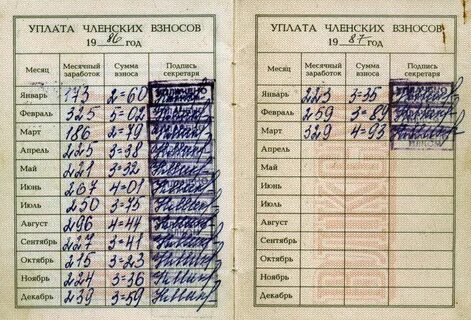 УПЛАТА ЧЛЕНСКИХ ВЗНОСОВ
1986 год
Месяц Месячный заработок Сумма взноса Подпись секретаря
Январь 173 2=60
Февраль 325 5=02
Март 186 2=79
Апрель 225 3=38
Май 221 3=32
Июнь 267 4=01
Июль 250 3=75
Август 296 4=44
Сентябрь 227 3=41
Октябрь 215 3=23
Ноябрь 224 3=36
Декабрь 239 3=59
УПЛАТА ЧЛЕНСКИХ ВЗНОСОВ
1987 год
Месяц Месячный заработок Сумма взноса Подпись секретаря
Январь 223 3=35
Февраль 259 3=89
Март 329 4=93
Апрель
Май
Июнь
Июль
Август
Сентябрь
Октябрь
Ноябрь
Декабрь
ВЛКСМ